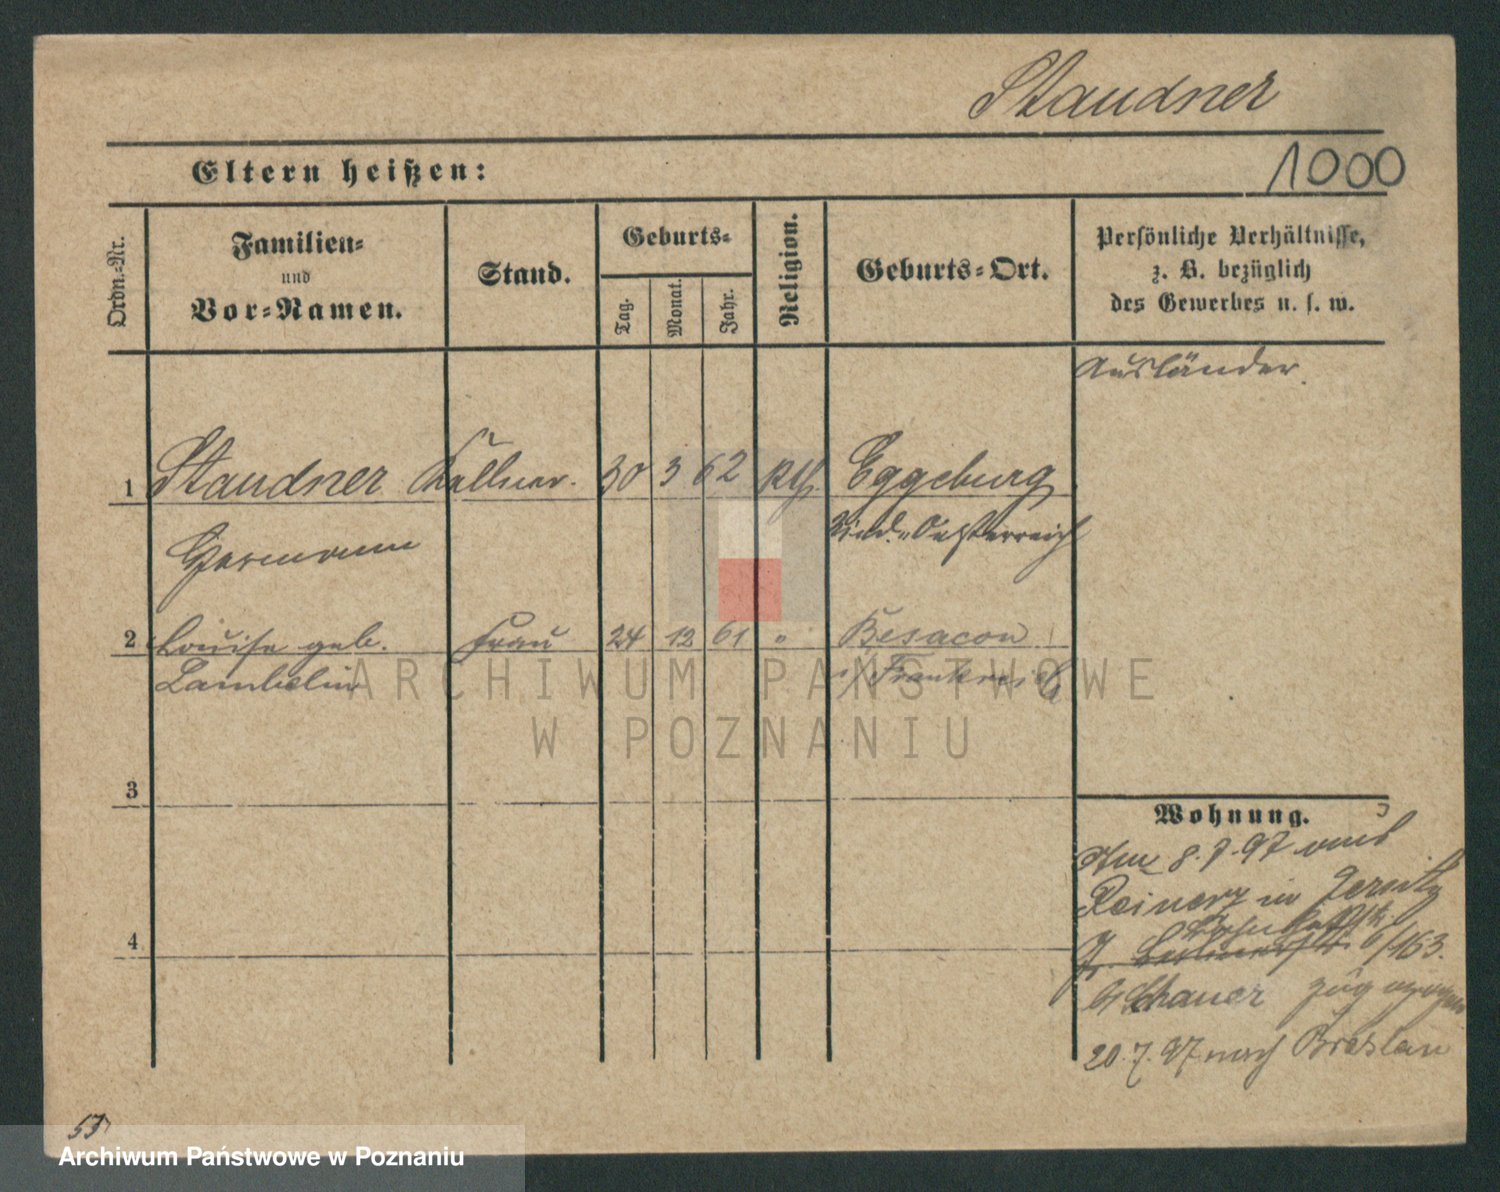 Staudner
Eltern heißen:
1000
Ordn.-Nr.
Familien-
und
Vor-Namen.
Stand.
Geburts-
Tag.
Monat.
Jahr.
Religion.
Geburts-Ort.
Persönliche Verhältnisse,
z. B. bezüglich
des Gewerbes u. s. w.
Ausländer.
1 Staudner Kellner. 30 3 62 kth. Eggeburg
Hermann Nied.-Oesterreich
2 Louise geb. Frau 24 12 61 " Besacon
Lambelin i/ Frankreich
3
4
Wohnung.
Am 8.7.97 aus
Reinerz in Jersitz
6/163.
b/ Schauer zugezogen
20.7.97 nach Breslau
53
ARCHIWUM PAŃSTWOWE
W POZNANIU
Archiwum Państwowe w Poznaniu